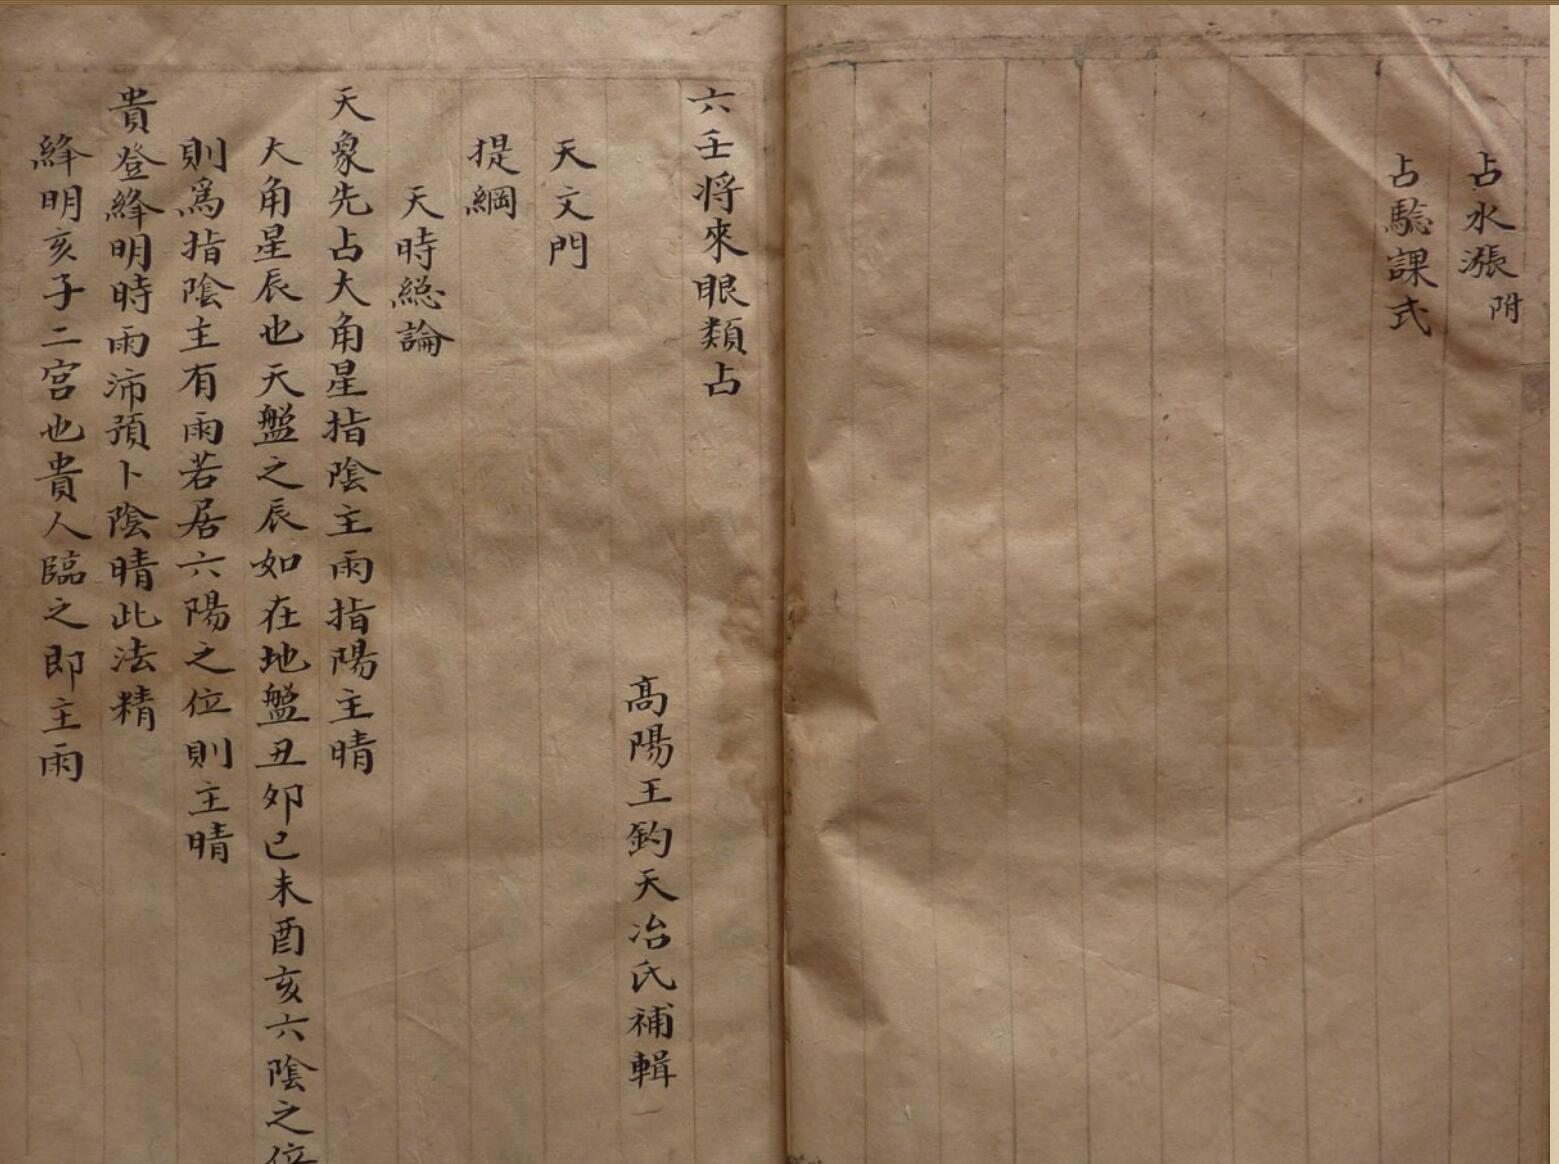 占水漲附
占驗課式
六壬將來眼類占
高陽王鈞天冶氏補輯
天文門
提綱
天時總論
天象先占大角星指陰主雨指陽主晴
大角星辰也天盤之辰如在地盤丑卯巳未酉亥六陰之位
則為指陰主有雨若居六陽之位則主晴
貴登絳明時雨沛預卜陰晴此法精
絳明亥子二宮也貴人臨之即主雨